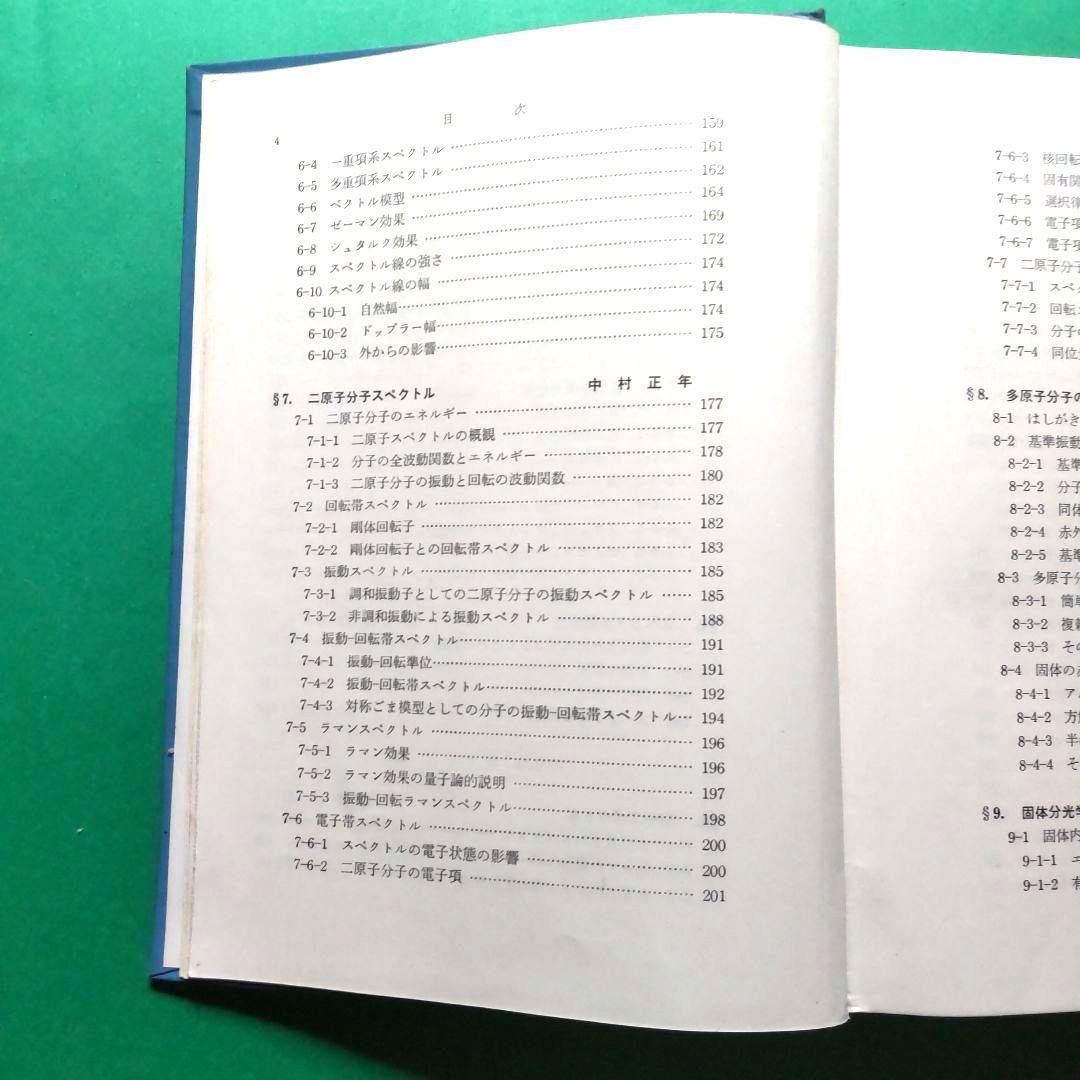 目 次
4
6-4 一重項系スペクトル ………… 159
6-5 多重項系スペクトル ………… 161
6-6 ベクトル模型 ………… 162
6-7 ゼーマン効果 ………… 164
6-8 シュタルク効果 ………… 169
6-9 スペクトル線の強さ ………… 172
6-10 スペクトル線の幅 ………… 174
6-10-1 自然幅 ………… 174
6-10-2 ドップラー幅 ………… 174
6-10-3 外からの影響 ………… 175
§7. 二原子分子スペクトル 中村正年
7-1 二原子分子のエネルギー ………… 177
7-1-1 二原子スペクトルの概観 ………… 177
7-1-2 分子の全波動関数とエネルギー ………… 178
7-1-3 二原子分子の振動と回転の波動関数 ………… 180
7-2 回転帯スペクトル ………… 182
7-2-1 剛体回転子 ………… 182
7-2-2 剛体回転子との回転帯スペクトル ………… 183
7-3 振動スペクトル ………… 185
7-3-1 調和振動子としての二原子分子の振動スペクトル …… 185
7-3-2 非調和振動による振動スペクトル ………… 188
7-4 振動–回転帯スペクトル ………… 191
7-4-1 振動–回転準位 ………… 191
7-4-2 振動–回転帯スペクトル ………… 192
7-4-3 対称ごま模型としての分子の振動–回転帯スペクトル … 194
7-5 ラマンスペクトル ………… 196
7-5-1 ラマン効果 ………… 196
7-5-2 ラマン効果の量子論的説明 ………… 197
7-5-3 振動–回転ラマンスペクトル ………… 198
7-6 電子帯スペクトル ………… 200
7-6-1 スペクトルの電子状態の影響 ………… 200
7-6-2 二原子分子の電子項 ………… 201
7-6-3 核回転
7-6-4 固有関
7-6-5 選択律
7-6-6 電子項
7-6-7 電子項
7-7 二原子分子
7-7-1 スペク
7-7-2 回転
7-7-3 分子の
7-7-4 同位
§8. 多原子分子の
8-1 はしがき
8-2 基準振動
8-2-1 基準
8-2-2 分子
8-2-3 同体
8-2-4 赤外
8-2-5 基準
8-3 多原子分
8-3-1 簡単
8-3-2 複雑
8-3-3 その
8-4 固体の
8-4-1 ア
8-4-2 方
8-4-3 半
8-4-4 そ
§9. 固体分光学
9-1 固体内
9-1-1 エ
9-1-2 有